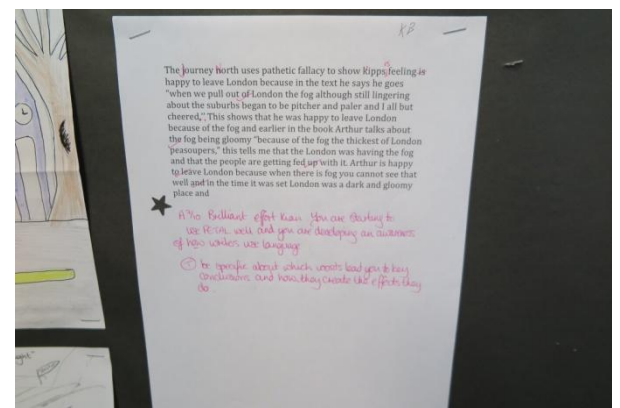 KB
The Journey North uses pathetic fallacy to show Kipps feeling is
happy to leave London because in the text he says he goes
"when we pull out of London the fog although still lingering
about the suburbs began to be pitcher and paler and I all but
cheered,". This shows that he was happy to leave London
because of the fog and earlier in the book Arthur talks about
the fog being gloomy "because of the fog the thickest of London
peasoupers," this tells me that the London was having the fog
and that the people are getting fed up with it. Arthur is happy
to leave London because when there is fog you cannot see that
well and in the time it was set London was a dark and gloomy
place and
Brilliant effort You are starting to
use well and you are developing an awareness
of how writers use language
be specific about which words lead you to key
conclusions and how they create the effects they
do